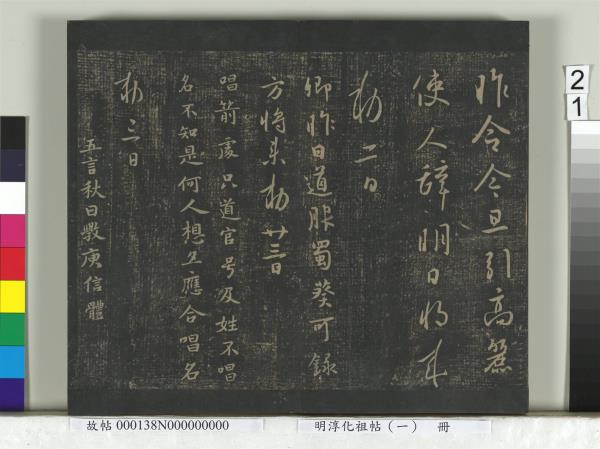 昨令今旦引高麗
使人辭明日將來
勅二日
卿昨日道服蜀葵可錄
方將來勅廿三日
唱箭處只道官号及姓不唱
名不知是何人想生應合唱名
勅三日
五言秋日斅庾信體
故帖 000138N000000000
明淳化祖帖(一) 冊
2
1